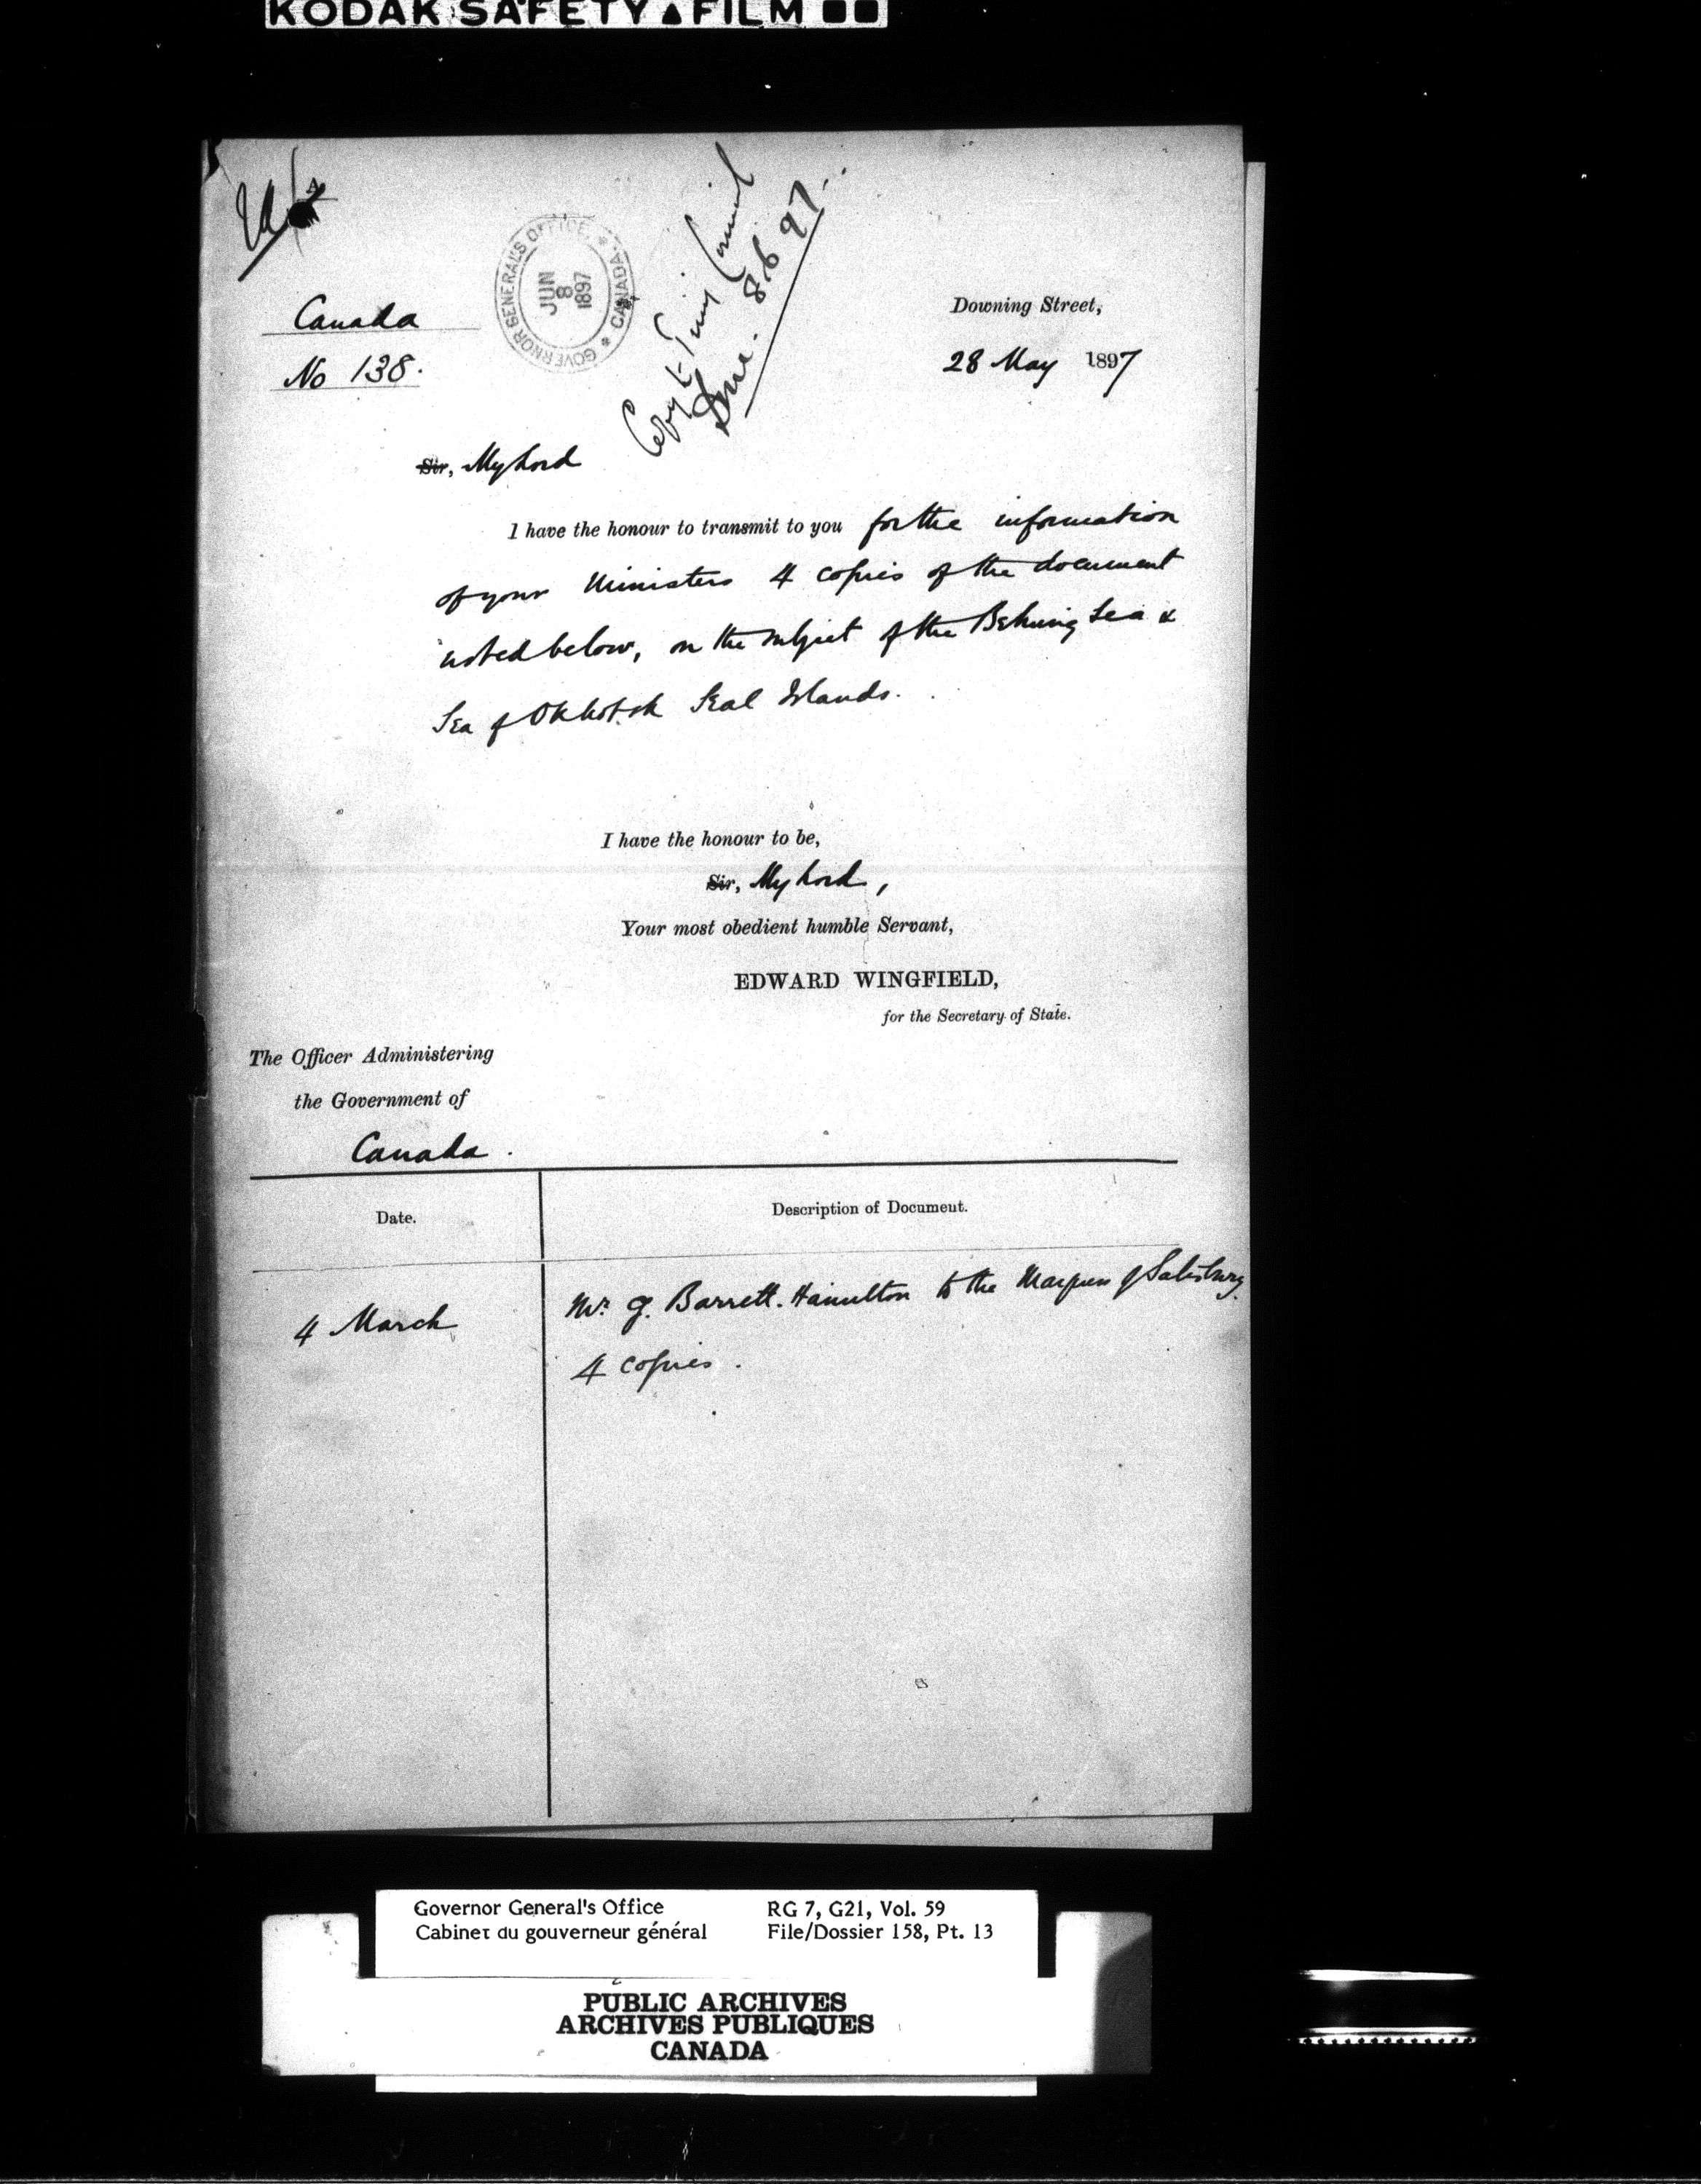 KODAK SAFETY ▲ FILM
GOVERNOR GENERAL'S OFFICE * CANADA *
JUN
8
1897
Copy to Privy Council
8.6.97
Canada
No 138.
Downing Street,
28 May 1897
Sir, My Lord
I have the honour to transmit to you for the information
of your Ministers 4 copies of the document
noted below, on the subject of the Behring Sea &
Sea of Okhotsk Seal Islands.
I have the honour to be,
Sir, My Lord,
Your most obedient humble Servant,
EDWARD WINGFIELD,
for the Secretary of State.
The Officer Administering
the Government of
Canada.
Date.
Description of Document.
4 March
Mr. G. Barrett-Hamilton to the Marquess of Salisbury.
4 copies.
Governor General's Office
Cabinet du gouverneur général
RG 7, G21, Vol. 59
File/Dossier 158, Pt. 13
PUBLIC ARCHIVES
ARCHIVES PUBLIQUES
CANADA